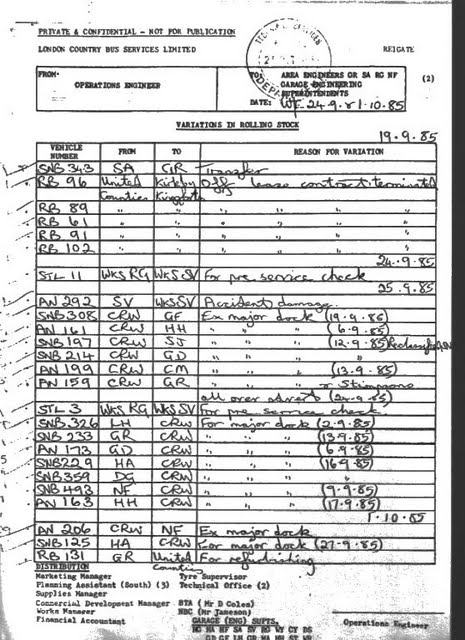 PRIVATE & CONFIDENTIAL - NOT FOR PUBLICATION
LONDON COUNTRY BUS SERVICES LIMITED REIGATE
FROM: OPERATIONS ENGINEER TO: AREA ENGINEERS GR SA RG NF (2)
GARAGE ENGINEERING
SUPERINTENDENTS
DATE: WE 24-9 & 1-10-85
VARIATIONS IN ROLLING STOCK
19-9-85
VEHICLE NUMBER FROM TO REASON FOR VARIATION
SNB 343 SA GR Transfer
RB 96 United Kirkby Off lease contract terminated
Counties Kingforth
RB 89 " " " " " "
RB 61 " " " " " "
RB 91 " " " " " "
RB 102 " " " " " "
24-9-85
STL 11 WKS RG WKS SV For pre service check
25-9-85
AN 292 SV WKS SV Accident damage.
SNB 308 CRW GF Ex major dock (19-9-85)
AN 161 CRW HH " " " (6-9-85)
SNB 197 CRW SJ " " " (12-9-85)
SNB 214 CRW GD " " "
AN 199 CRW CM " " " (13-9-85)
AN 159 CRW GR " " " Stimpsons
all over advert (24-9-85)
STL 3 WKS RG WKS SV For pre service check
SNB 326 LH CRW For major dock (2-9-85)
SNB 233 GR CRW " " " (13-9-85)
AN 173 GD CRW " " " (6-9-85)
SNB 229 HA CRW " " " (16-9-85)
SNB 359 DG CRW " " "
SNB 493 NF CRW " " " (9-9-85)
AN 163 HH CRW " " " (17-9-85)
1-10-85
AN 206 CRW NF Ex major dock
SNB 125 HA CRW For major dock (27-9-85)
RB 131 GR United For refurbishing
Counties
DISTRIBUTION
Marketing Manager Tyre Supervisor
Planning Assistant (South) (3) Technical Office (2)
Supplies Manager
Commercial Development Manager BTA (Mr D Coles)
Works Manager NBC (Mr Jameson)
Financial Accountant GARAGE (ENG) SUPTS. Operations Engineer